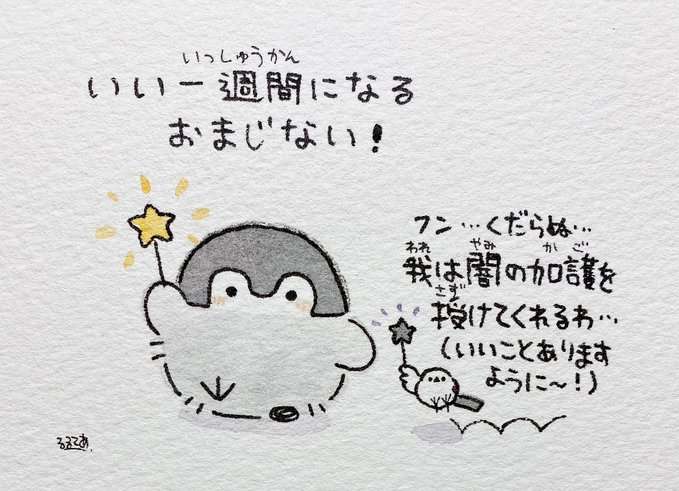 いっしゅうかん
いい一週間になる
おまじない!
フン…くだらぬ…
われ やみ かご
我は闇の加護を
さず
授けてくれるわ…
(いいことあります
ように〜!)
るるてあ.